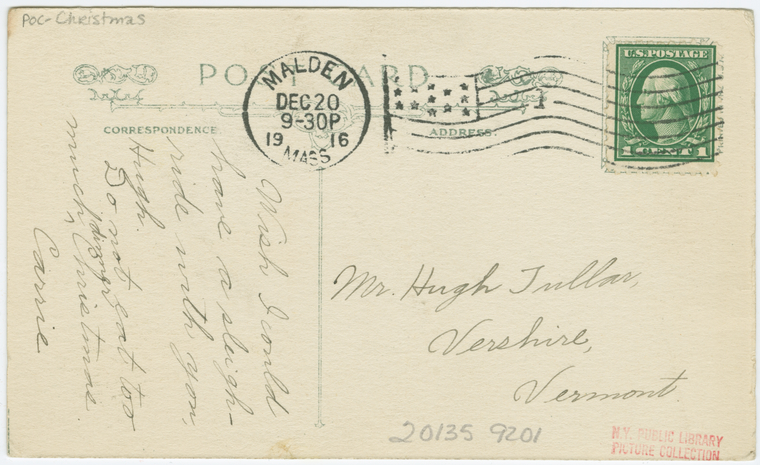 POC-Christmas
POST CARD
CORRESPONDENCE
ADDRESS.
MALDEN
DEC 20
9-30P
1916
MASS
U.S. POSTAGE
1 CENT 1
Wish I could
have a sleigh-
ride with you
Hugh.
Do not eat too
much dinner Christmas.
Carrie
Mr. Hugh Tullar,
Vershire,
Vermont.
20135 9201
N.Y. PUBLIC LIBRARY
PICTURE COLLECTION